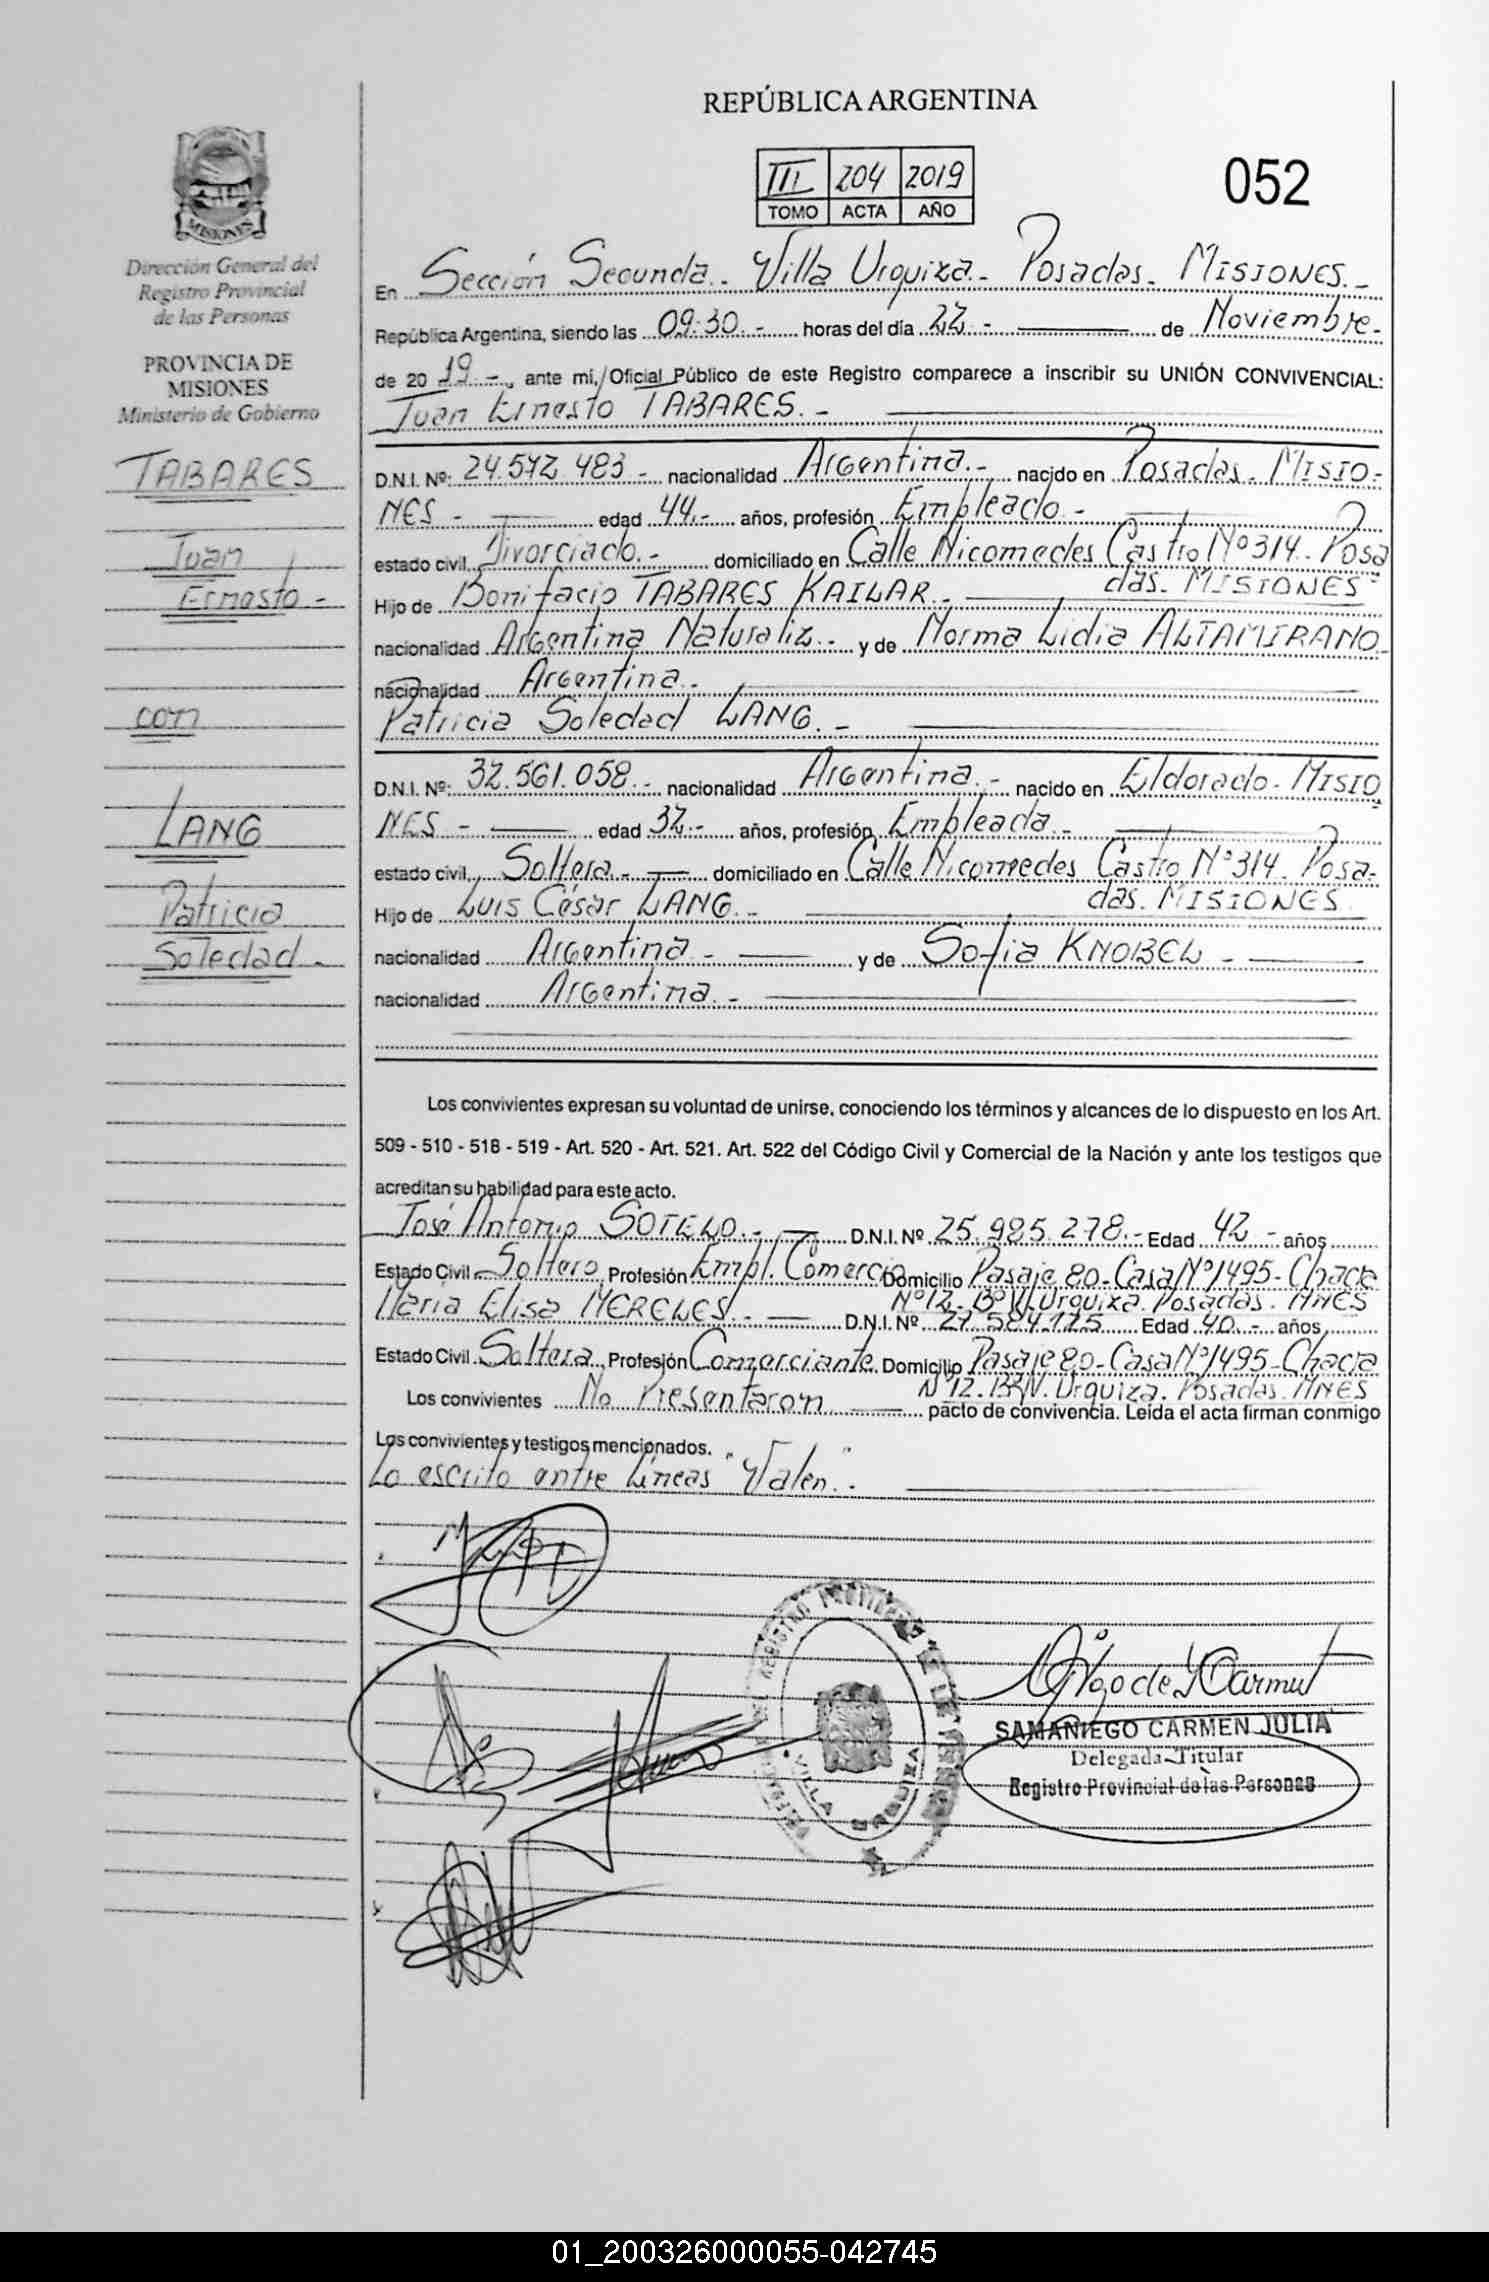 REPÚBLICA ARGENTINA
III 204 2019
TOMO ACTA AÑO
052
Dirección General del
Registro Provincial
de las Personas
PROVINCIA DE
MISIONES
Ministerio de Gobierno
TABARES
Juan
Ernesto -
con
LANG
Patricia
Soledad -
En Sección Segunda - Villa Urquiza - Posadas - MISIONES. -
República Argentina, siendo las 09:30. - horas del día 22 - de Noviembre -
de 20 19 - , ante mi, Oficial Público de este Registro comparece a inscribir su UNIÓN CONVIVENCIAL:
Juan Ernesto TABARES. -
D.N.I. Nº: 24.572.483 - nacionalidad Argentina. - nacido en Posadas. MISIO-
NES - edad 44.- años, profesión Empleado -
estado civil Divorciado. - domiciliado en Calle Nicomedes Castro Nº 314. Posa
das. MISIONES
Hijo de Bonifacio TABARES KAILAR -
nacionalidad Argentina Naturaliz. - y de Norma Lidia ALTAMIRANO
nacionalidad Argentina. -
Patricia Soledad LANG. -
D.N.I. Nº: 32.561.058. - nacionalidad Argentina. - nacido en Eldorado - MISIO
NES - edad 32.- años, profesión Empleada -
estado civil Soltera. - domiciliado en Calle Nicomedes Castro Nº 314. Posa-
das. MISIONES
Hijo de Luis César LANG. -
nacionalidad Argentina - y de Sofia KNOBEL -
nacionalidad Argentina. -
Los convivientes expresan su voluntad de unirse, conociendo los términos y alcances de lo dispuesto en los Art.
509 - 510 - 518 - 519 - Art. 520 - Art. 521. Art. 522 del Código Civil y Comercial de la Nación y ante los testigos que
acreditan su habilidad para este acto.
José Antonio SOTELO. - D.N.I. Nº 25.985.278. - Edad 42 - años
Estado Civil Soltero Profesión Empl. Comercio Domicilio Pasaje 80 - Casa Nº 1495 - Chacra
Nº 12 - Bº V. Urquiza. Posadas. MNES
Maria Elisa MERELES. - D.N.I. Nº 27.584.125 Edad 40. - años
Estado Civil Soltera Profesión Comerciante Domicilio Pasaje 80 - Casa Nº 1495 - Chacra
Nº 12. Bº V. Urquiza. Posadas. MNES
Los convivientes No Presentaron pacto de convivencia. Leída el acta firman conmigo
Los convivientes y testigos mencionados.
Lo escrito entre Líneas "Valen".
VILLA URQUIZA
SAMANIEGO CARMEN JULIA
Delegada Titular
Registro Provincial de las Personas
01_200326000055-042745